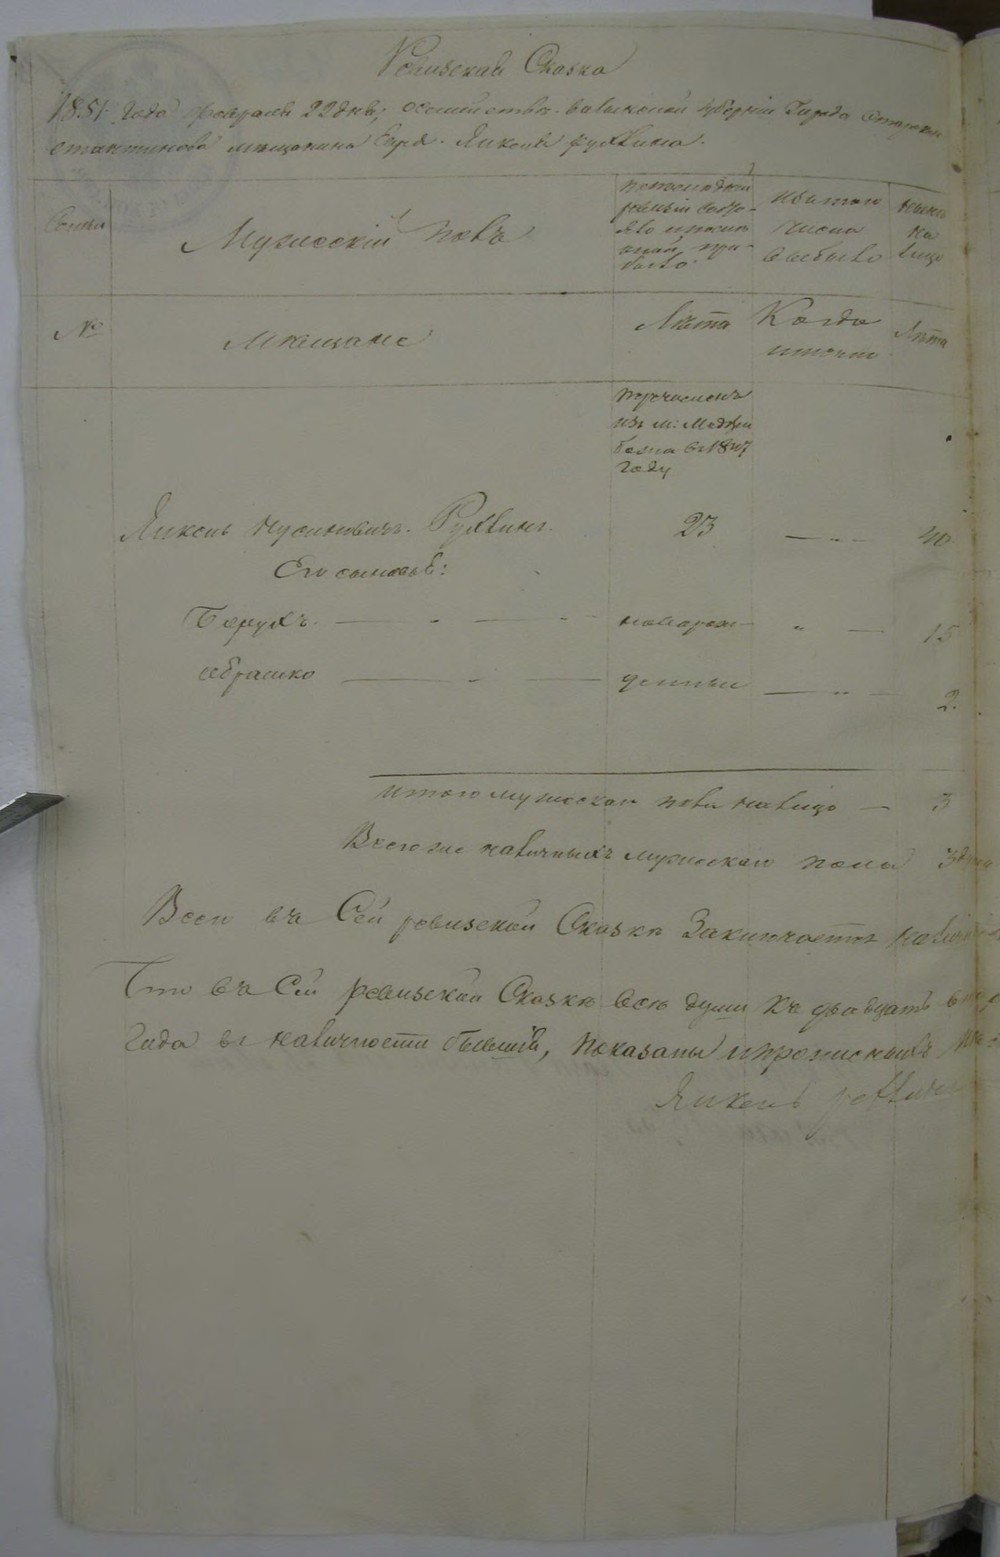 Ревизская Сказка
1851 года февраля 22 дня, о семействе Волынской губернии Города Старокон
стантинова мещанина Еврея Янкеля Рухвина.
Семьи
Мужеский полъ
По последней
ревизии состо-
яло и после
оной при-
было
Изъ того
числа
выбыло
Ныне
на
лицо
№
Мещане
Лета
Когда
имянно
Лета
Перечисленъ
изъ м: Меджи
божа въ 1847
году
Янкель Нусиновичъ Рухвинъ 23 — „ — 40
Его сыновья:
Борухъ — „ — новорож — „ — 15
Абрашко — „ — денные — „ — 2
Итого мужеска пола на лицо — 3
Всего же наличныхъ мужескаго пола 3 души
Всего въ Сей ревизской Сказке Заключается
Что въ Сей ревизской Сказке все души къ двадцать
Года въ наличности бывшия, показаны и прописныхъ
Янкель